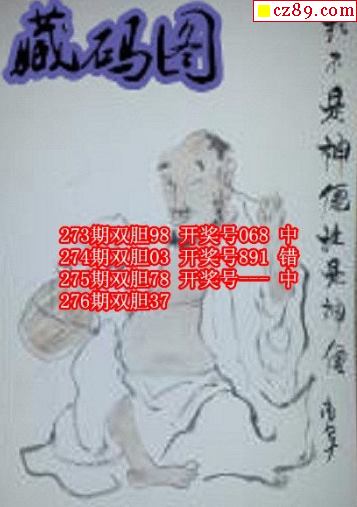 cz89.com
藏码图
我不是神僊性是神僊
273期双胆98 开奖号068 中
274期双胆03 开奖号891 错
275期双胆78 开奖号一一 中
276期双胆37